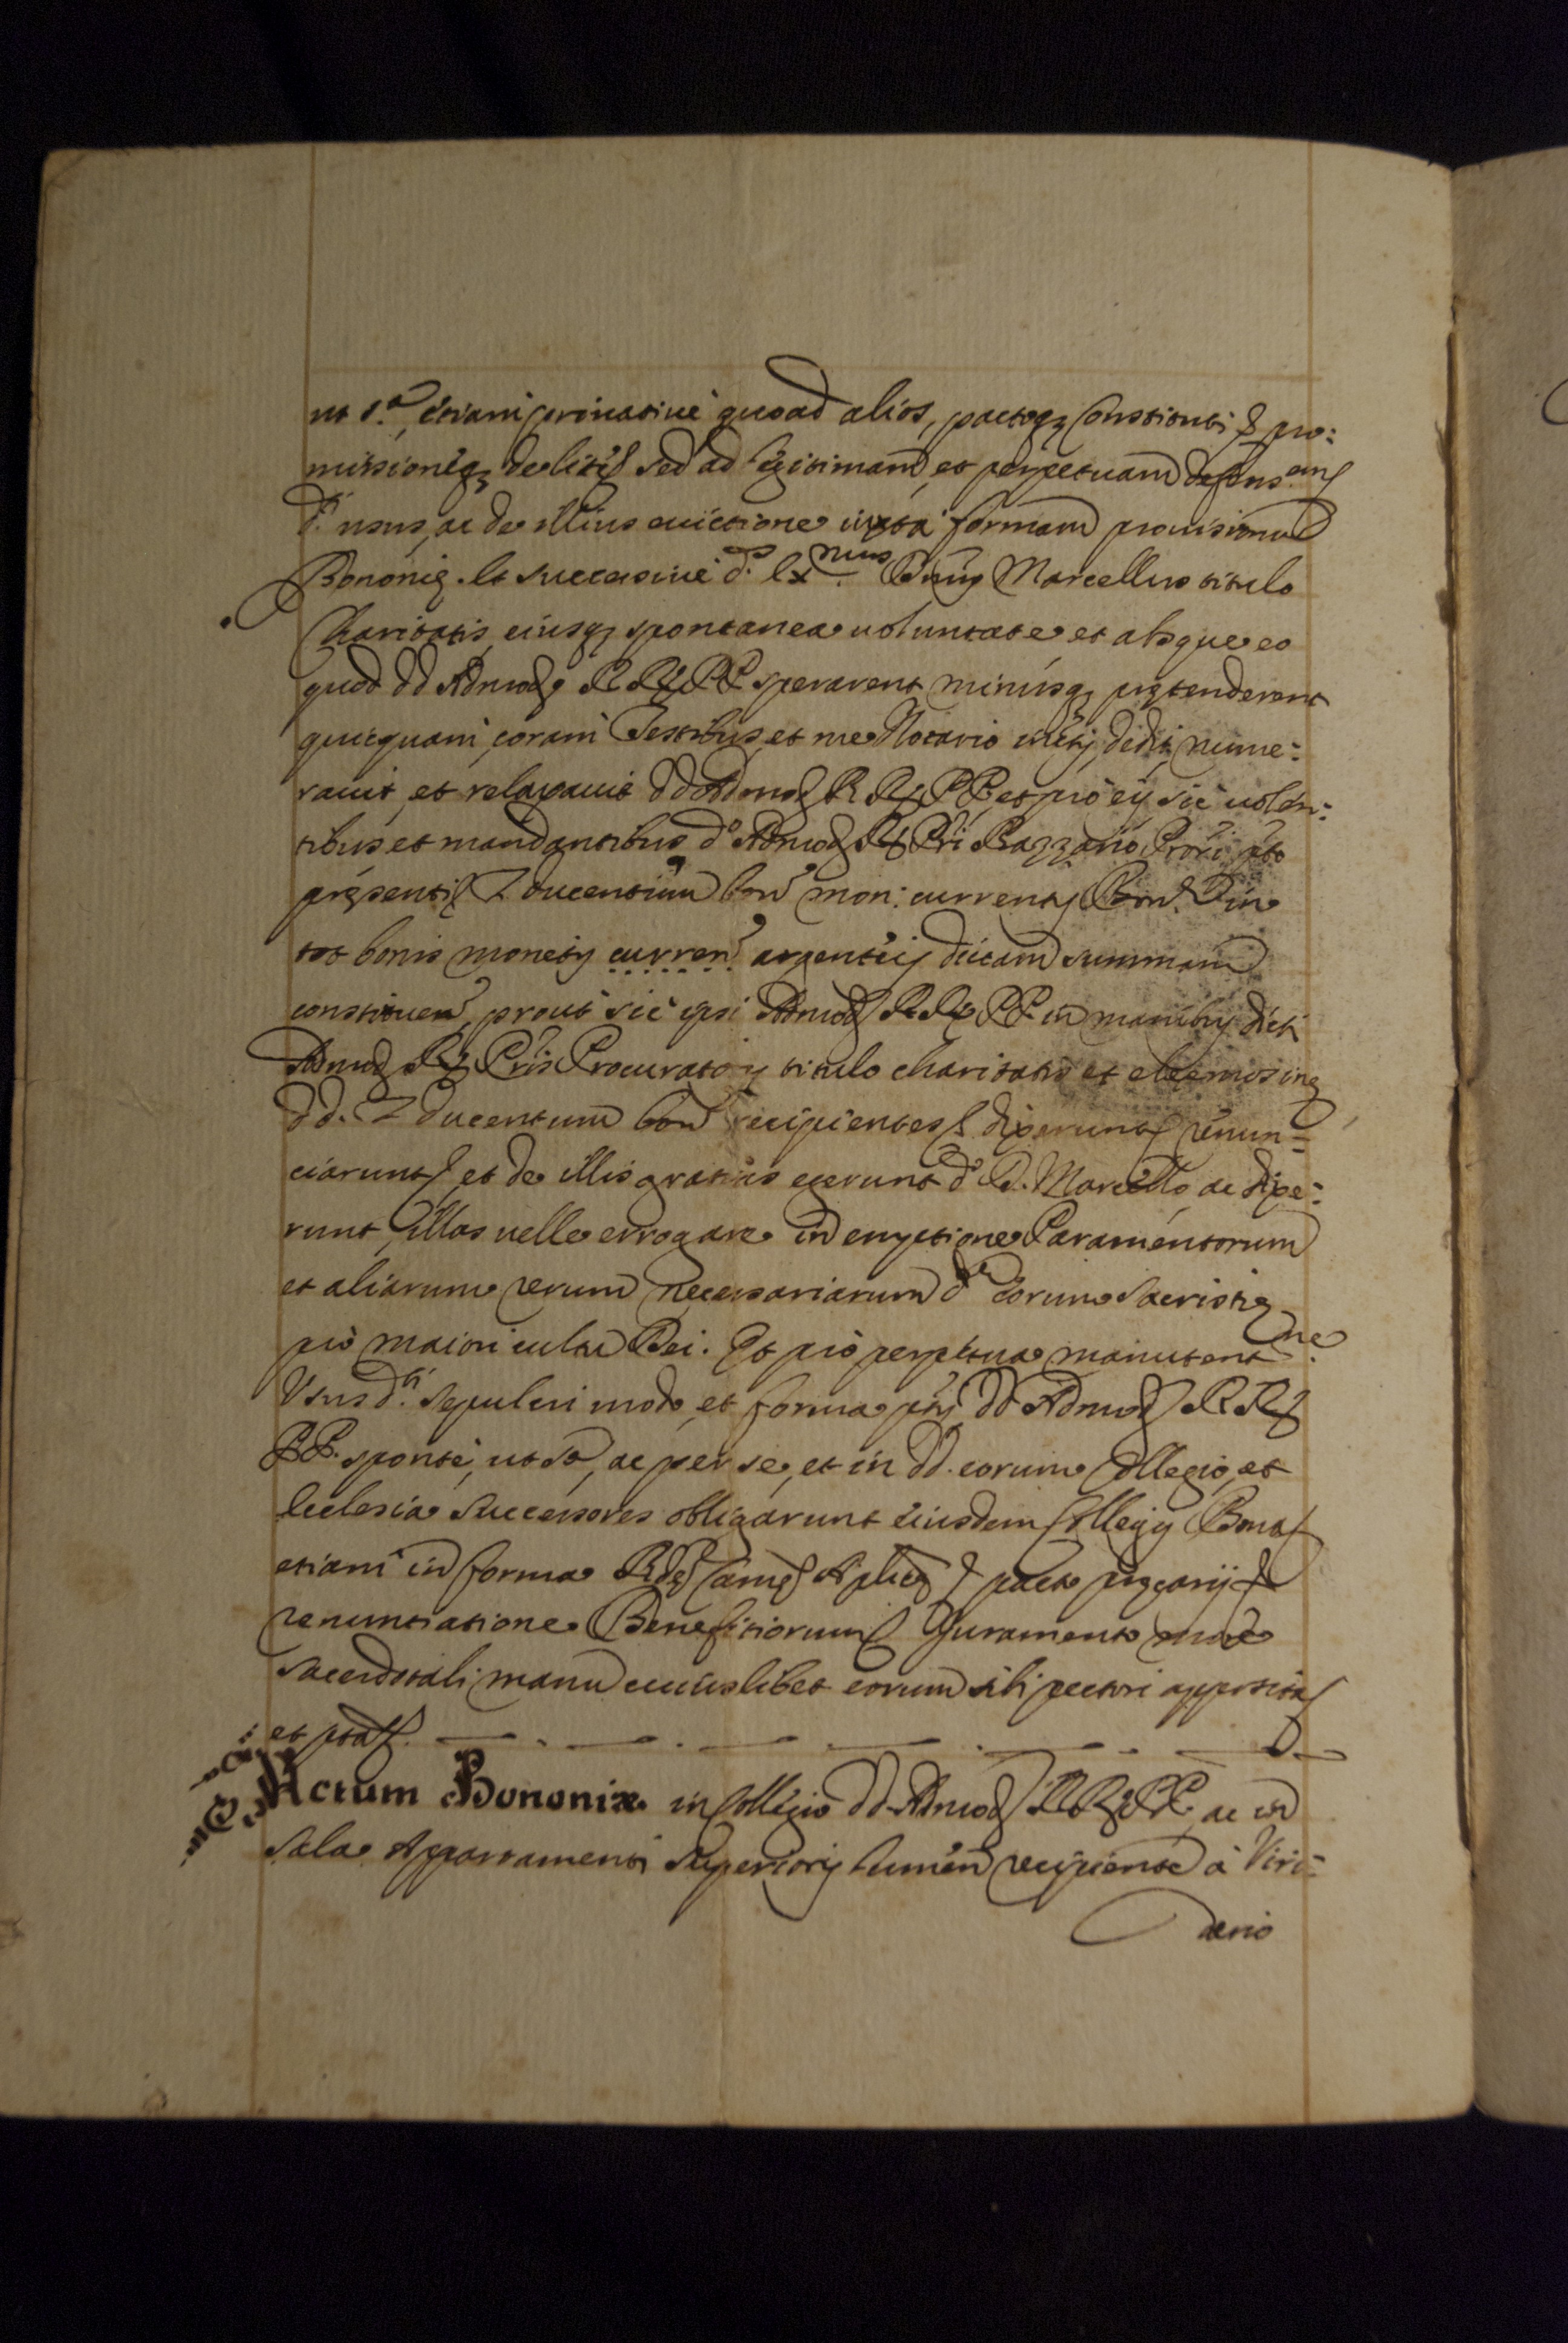 ut s.ª, etiam privative quoad alios, pactoq; Constituti & pro:
missioneq; de lite & sed ad legitimam, et perpetuam defens.em &
d.i usus, ac de illius evictione iuxta formam provisionum
Bononię. Et successive d.s Ex.mus D.nus Marcellus titulo
Charitatis, eiusq; spontanea voluntate, et absque eo
quod dd Admod. RR. PP. sperarent minusq; prętenderent
quicquam, coram Testibus, et me Notario inf.tis, dedit, nume:
ravit, et relaxavit dd Admod. RR. PP. et pro eis sic volen:
tibus et mandantibus d.o Admod. R. Pri Bazzano, Prori, ibi
pręsenti & L ducentum bon. mon: currentis Bon. in
tot bonis monetis curren. argenteis dictam summam
constituen, prout sic ipsi Admod. RR. PP. in manibus dicti
Admod. R. Pris Procuratoris titulo charitatis et eleemosinę
dd. L ducentum bon. recipientes & dixerunt & renun=
ciarunt & et de illis gratias egerunt d.o D. Marcello, ac dixe:
runt, illas velle errogare in emptione Paramentorum
et aliarum rerum necessariarum d. eorum Sacristię
pro maiori cultu Dei. Et pro perpetua manutent.ne
Usus d.ti Sepulcri modo, et forma ptis dd Admod. RR.
PP. sponte, ut s.ª, ac per se, et in dd. eorum Collegio, et
Ecclesia Successores obligarunt eiusdem Collegij Bona &
etiam in forma R.dę Camę Aplicę & pacto pręcarij &
renuntiatione Benefitiorum & Iuramento more
Sacerdotali manu cuiuslibet eorum sibi pectori apposita &
et ptaf. — . — . — . — . — . —
Actum Bononiæ in Collegio dd. Admod. RR. PP. ac in
Sala Appartamenti Superioris lumen recipiente à Viri=
dario